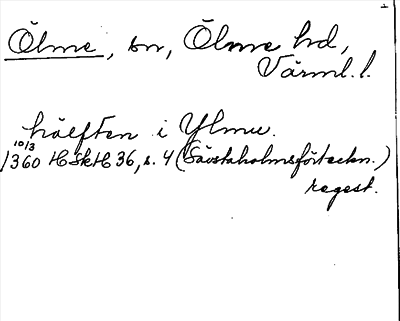 Ölme, sn, Ölme hd,
Värml. l.
hälften i Ylmu.
10/3
1360 HSkH 36, s. 4 (Sävstaholmsförteckn.)
regest.